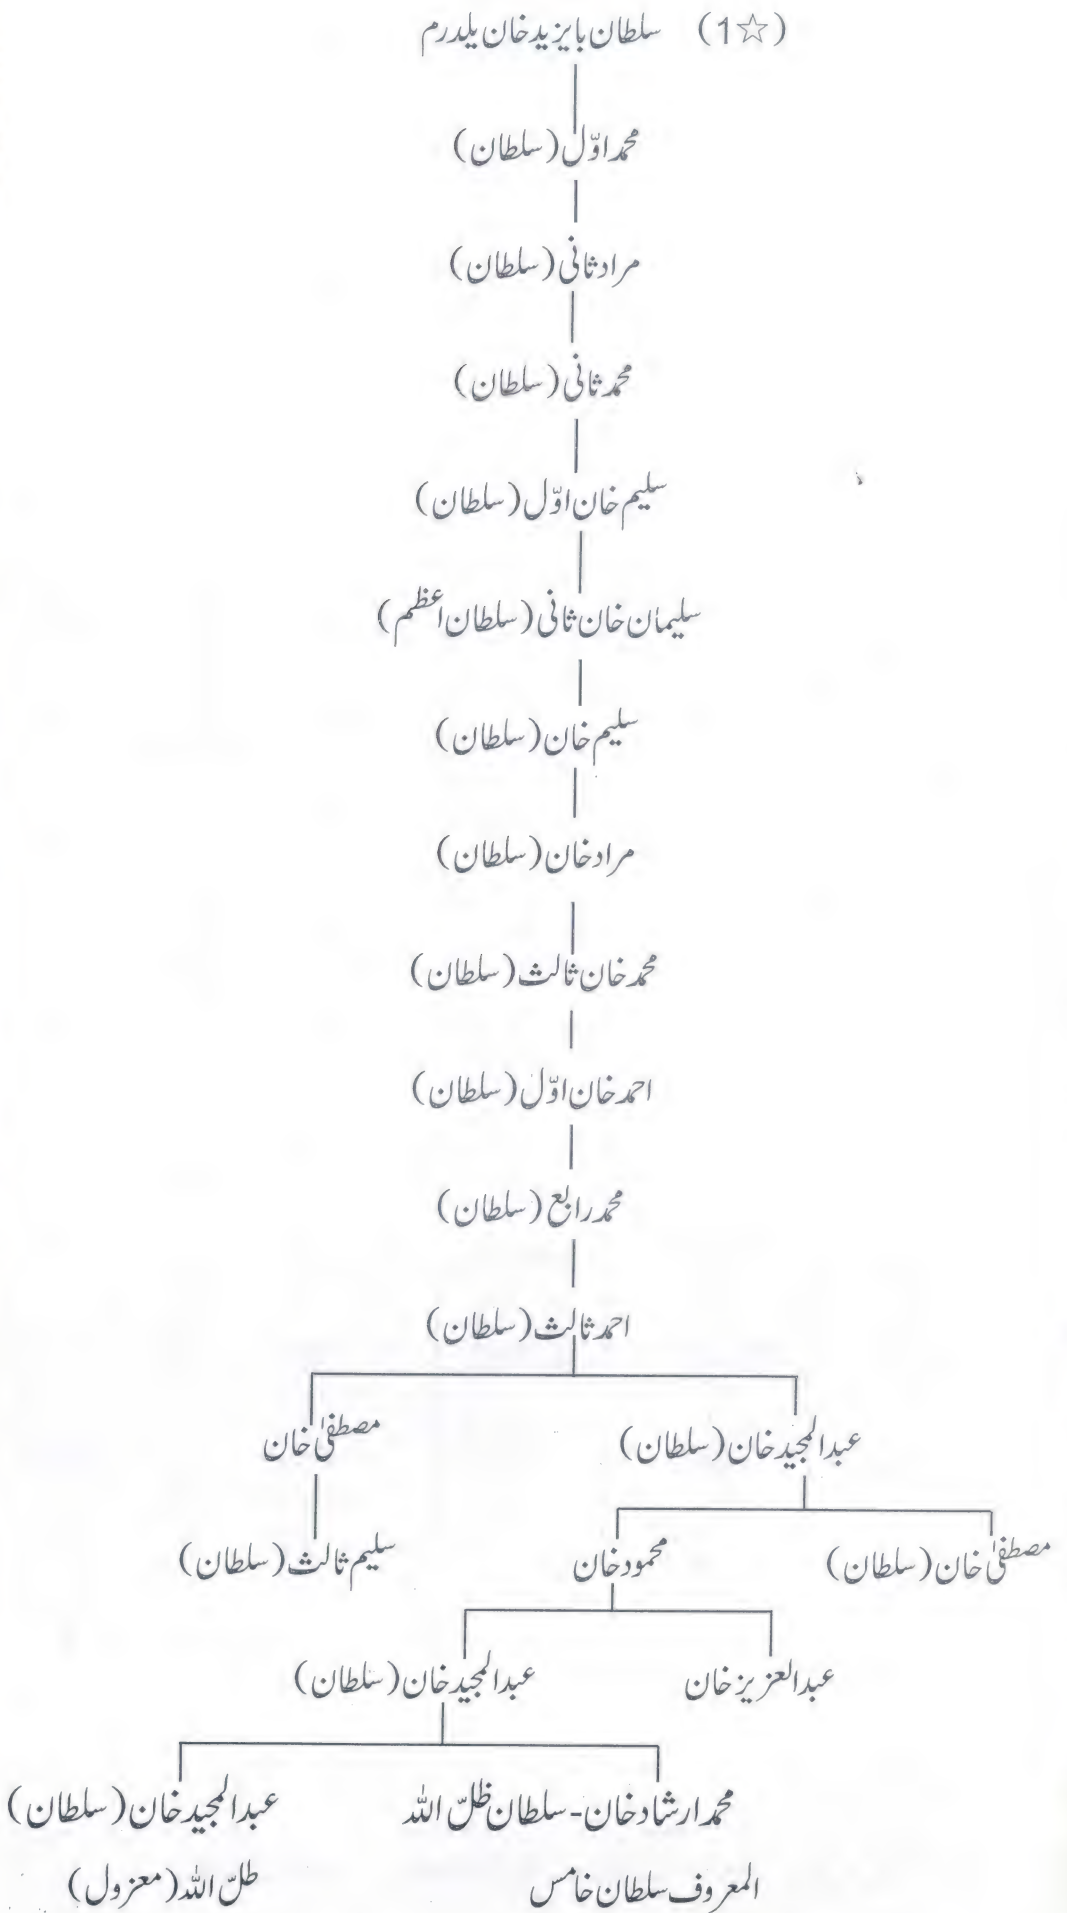 (☆1) سلطان بایزید خان یلدرم
محمد اوّل (سلطان)
مراد ثانی (سلطان)
محمد ثانی (سلطان)
سلیم خان اوّل (سلطان)
سلیمان خان ثانی (سلطان اعظم)
سلیم خان (سلطان)
مراد خان (سلطان)
محمد خان ثالث (سلطان)
احمد خان اوّل (سلطان)
محمد رابع (سلطان)
احمد ثالث (سلطان)
عبدالمجید خان (سلطان) مصطفیٰ خان
مصطفیٰ خان (سلطان) محمود خان سلیم ثالث (سلطان)
عبدالعزیز خان عبدالمجید خان (سلطان)
محمد ارشاد خان - سلطان ظلّ اللہ عبدالمجید خان (سلطان)
المعروف سلطان خامس طلّ اللہ (معزول)